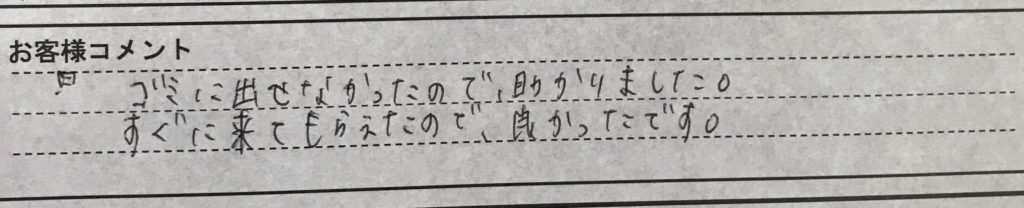 お客様コメント
ゴミに出せなかったので、助かりました。
すぐに来てもらえたので、良かったです。